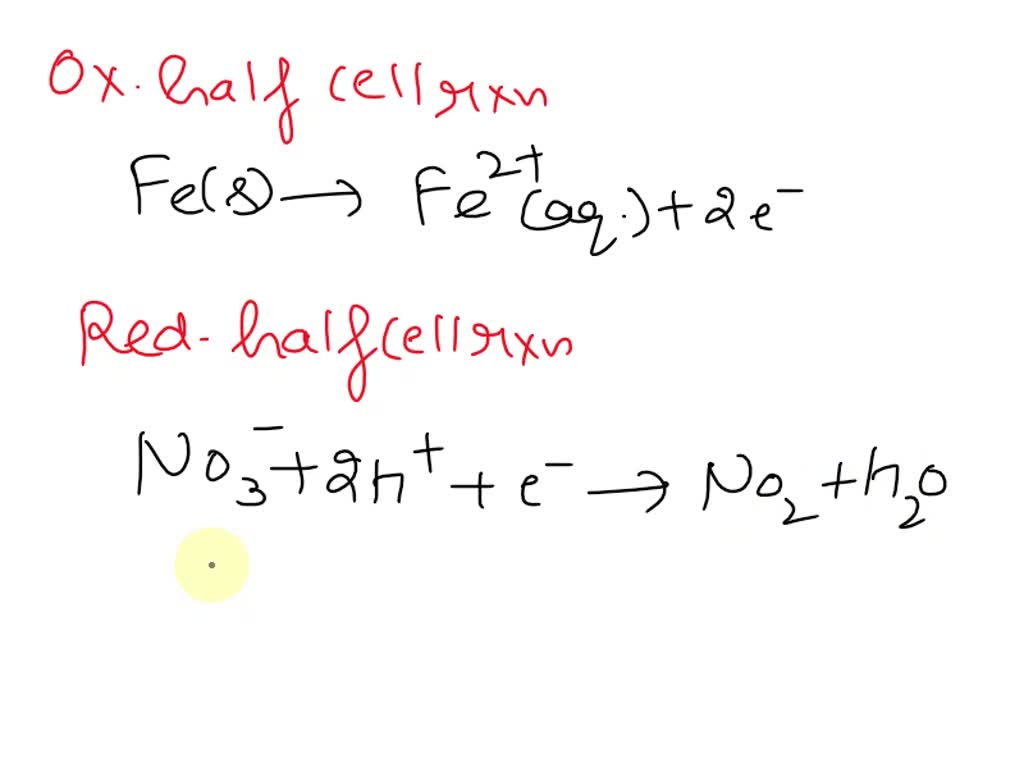 Ox. half cell rxn
Fe(s) → Fe²⁺(aq.) + 2e⁻
Red- half cell rxn
NO₃⁻ + 2h⁺ + e⁻ → NO₂ + h₂O